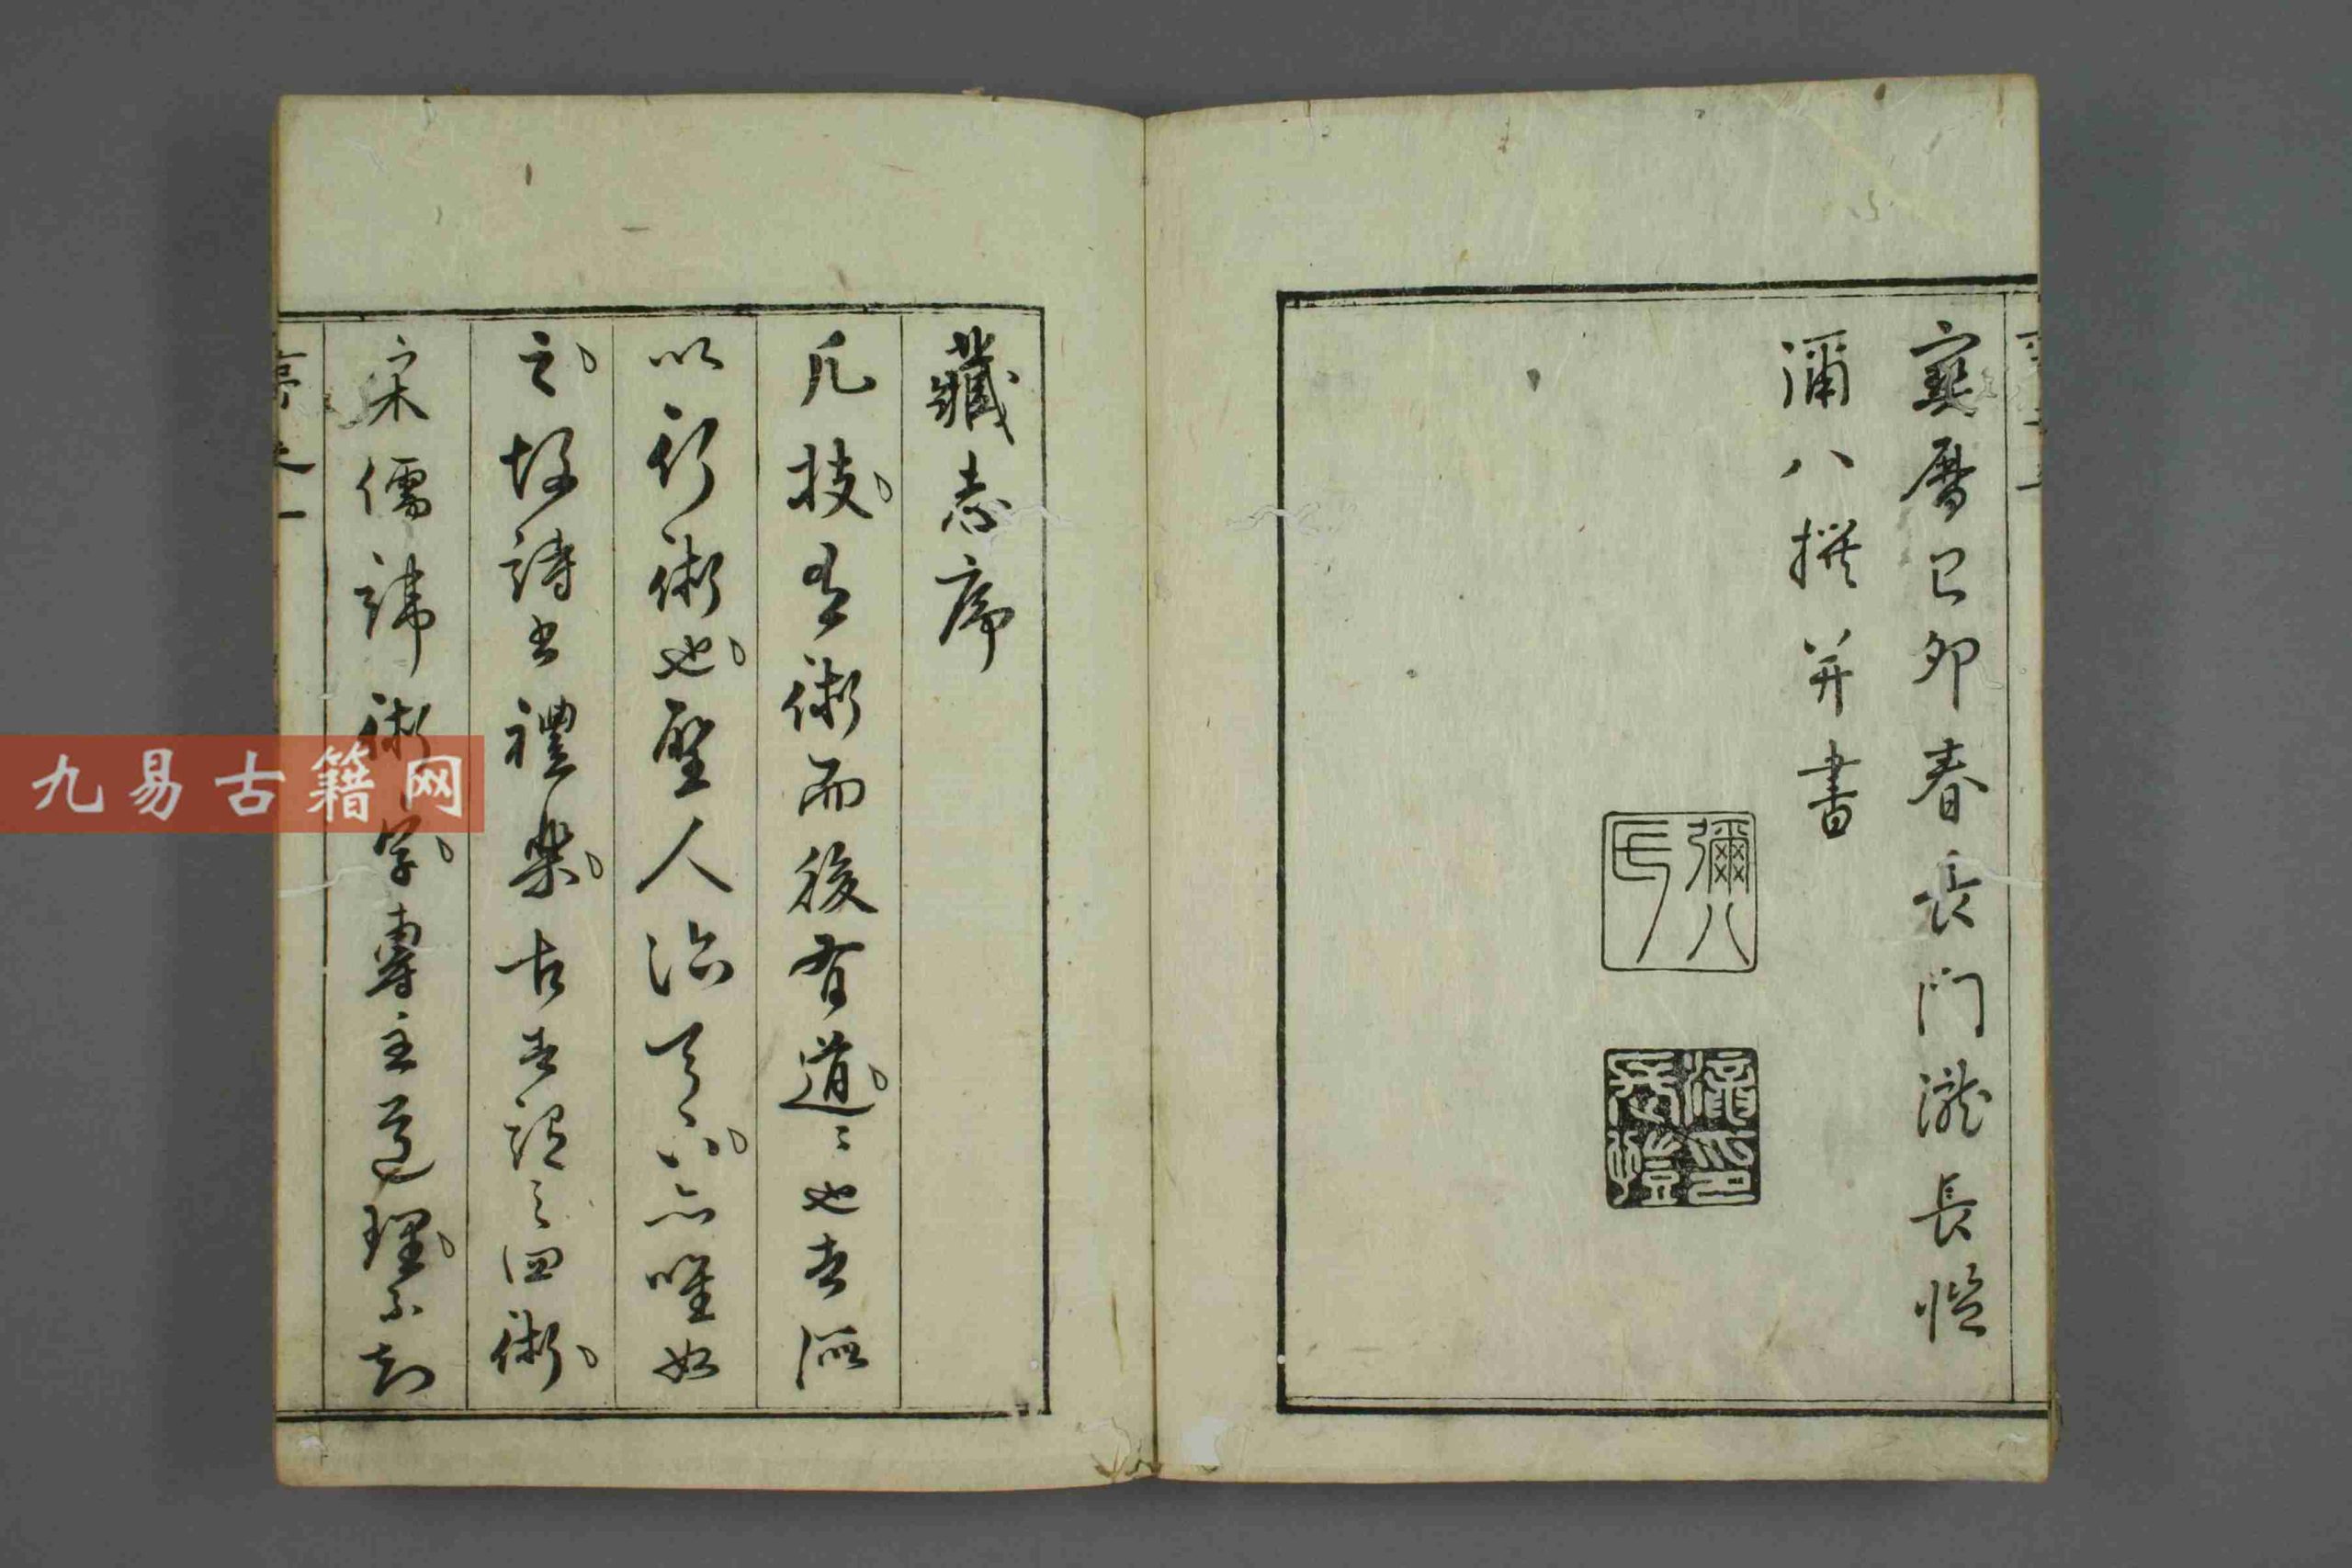 寳曆己卯春長門瀧長愷
彌八撰并書
彌八氏
瀧印長愷
藏志序
凡技有術而後有道〻也者所
以行術也聖人治天下亦唯如
之故詩書禮樂古者謂之四術
宋儒諱術字專主道理不知
序之一
九易古籍网